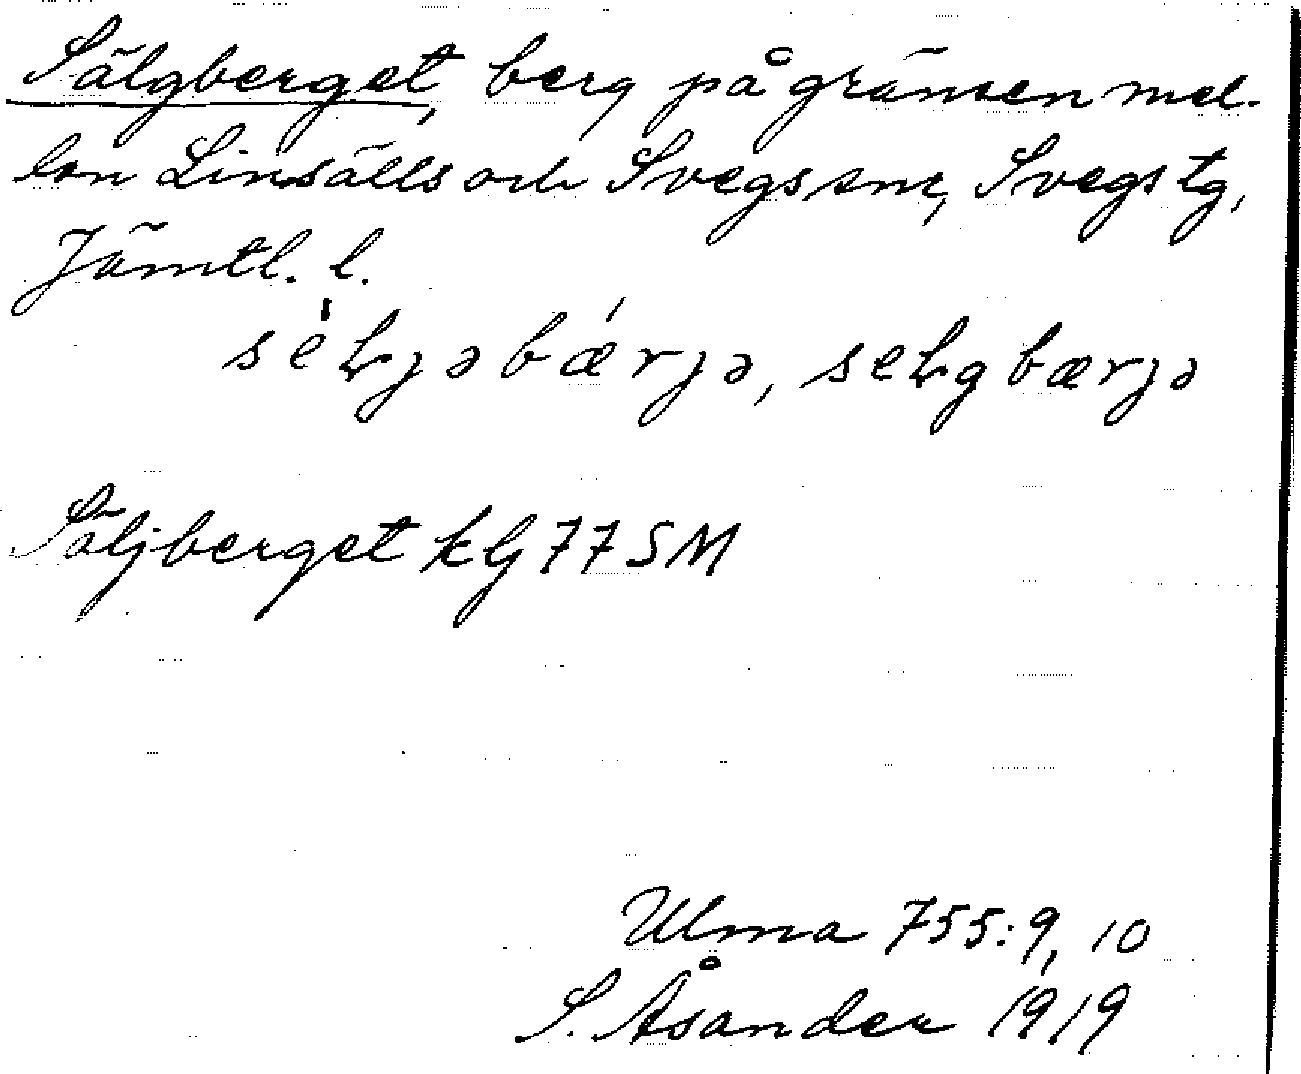 Sälgberget, berg på gränsen mel-
lan Linsälls och Svegs snr, Svegs tg,
Jämtl. l.
sèłjəbǽrjə, sełgbærjə
Säljberget klj 77 SM
Ulma 755:9, 10
S. Åsander 1919